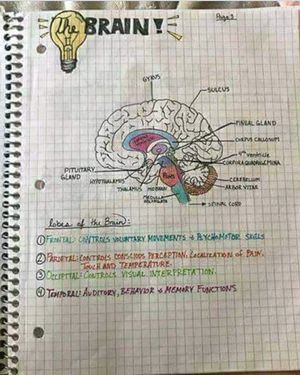 Page 3
The BRAIN!
GYRUS
SULCUS
PINEAL GLAND
CORPUS CALLOSUM
4th ventricle
CORPORA QUADRIGEMINA
PITUITARY
GLAND
HYPOTHALAMUS
PONS
CEREBELLUM
THALAMUS
MIDBRAIN
ARBOR VITAE
MEDULLA
OBLONGATA
SPINAL CORD
Lobes of the Brain:
① FRONTAL: CONTROLS VOLUNTARY MOVEMENTS & PSYCHOMOTOR SKILLS
② PARIETAL: CONTROLS CONSCIOUS PERCEPTION, LOCALIZATION OF PAIN,
TOUCH AND TEMPERATURE.
③ OCCIPITAL: CONTROLS VISUAL INTERPRETATION.
④ TEMPORAL: AUDITORY, BEHAVIOR & MEMORY FUNCTIONS